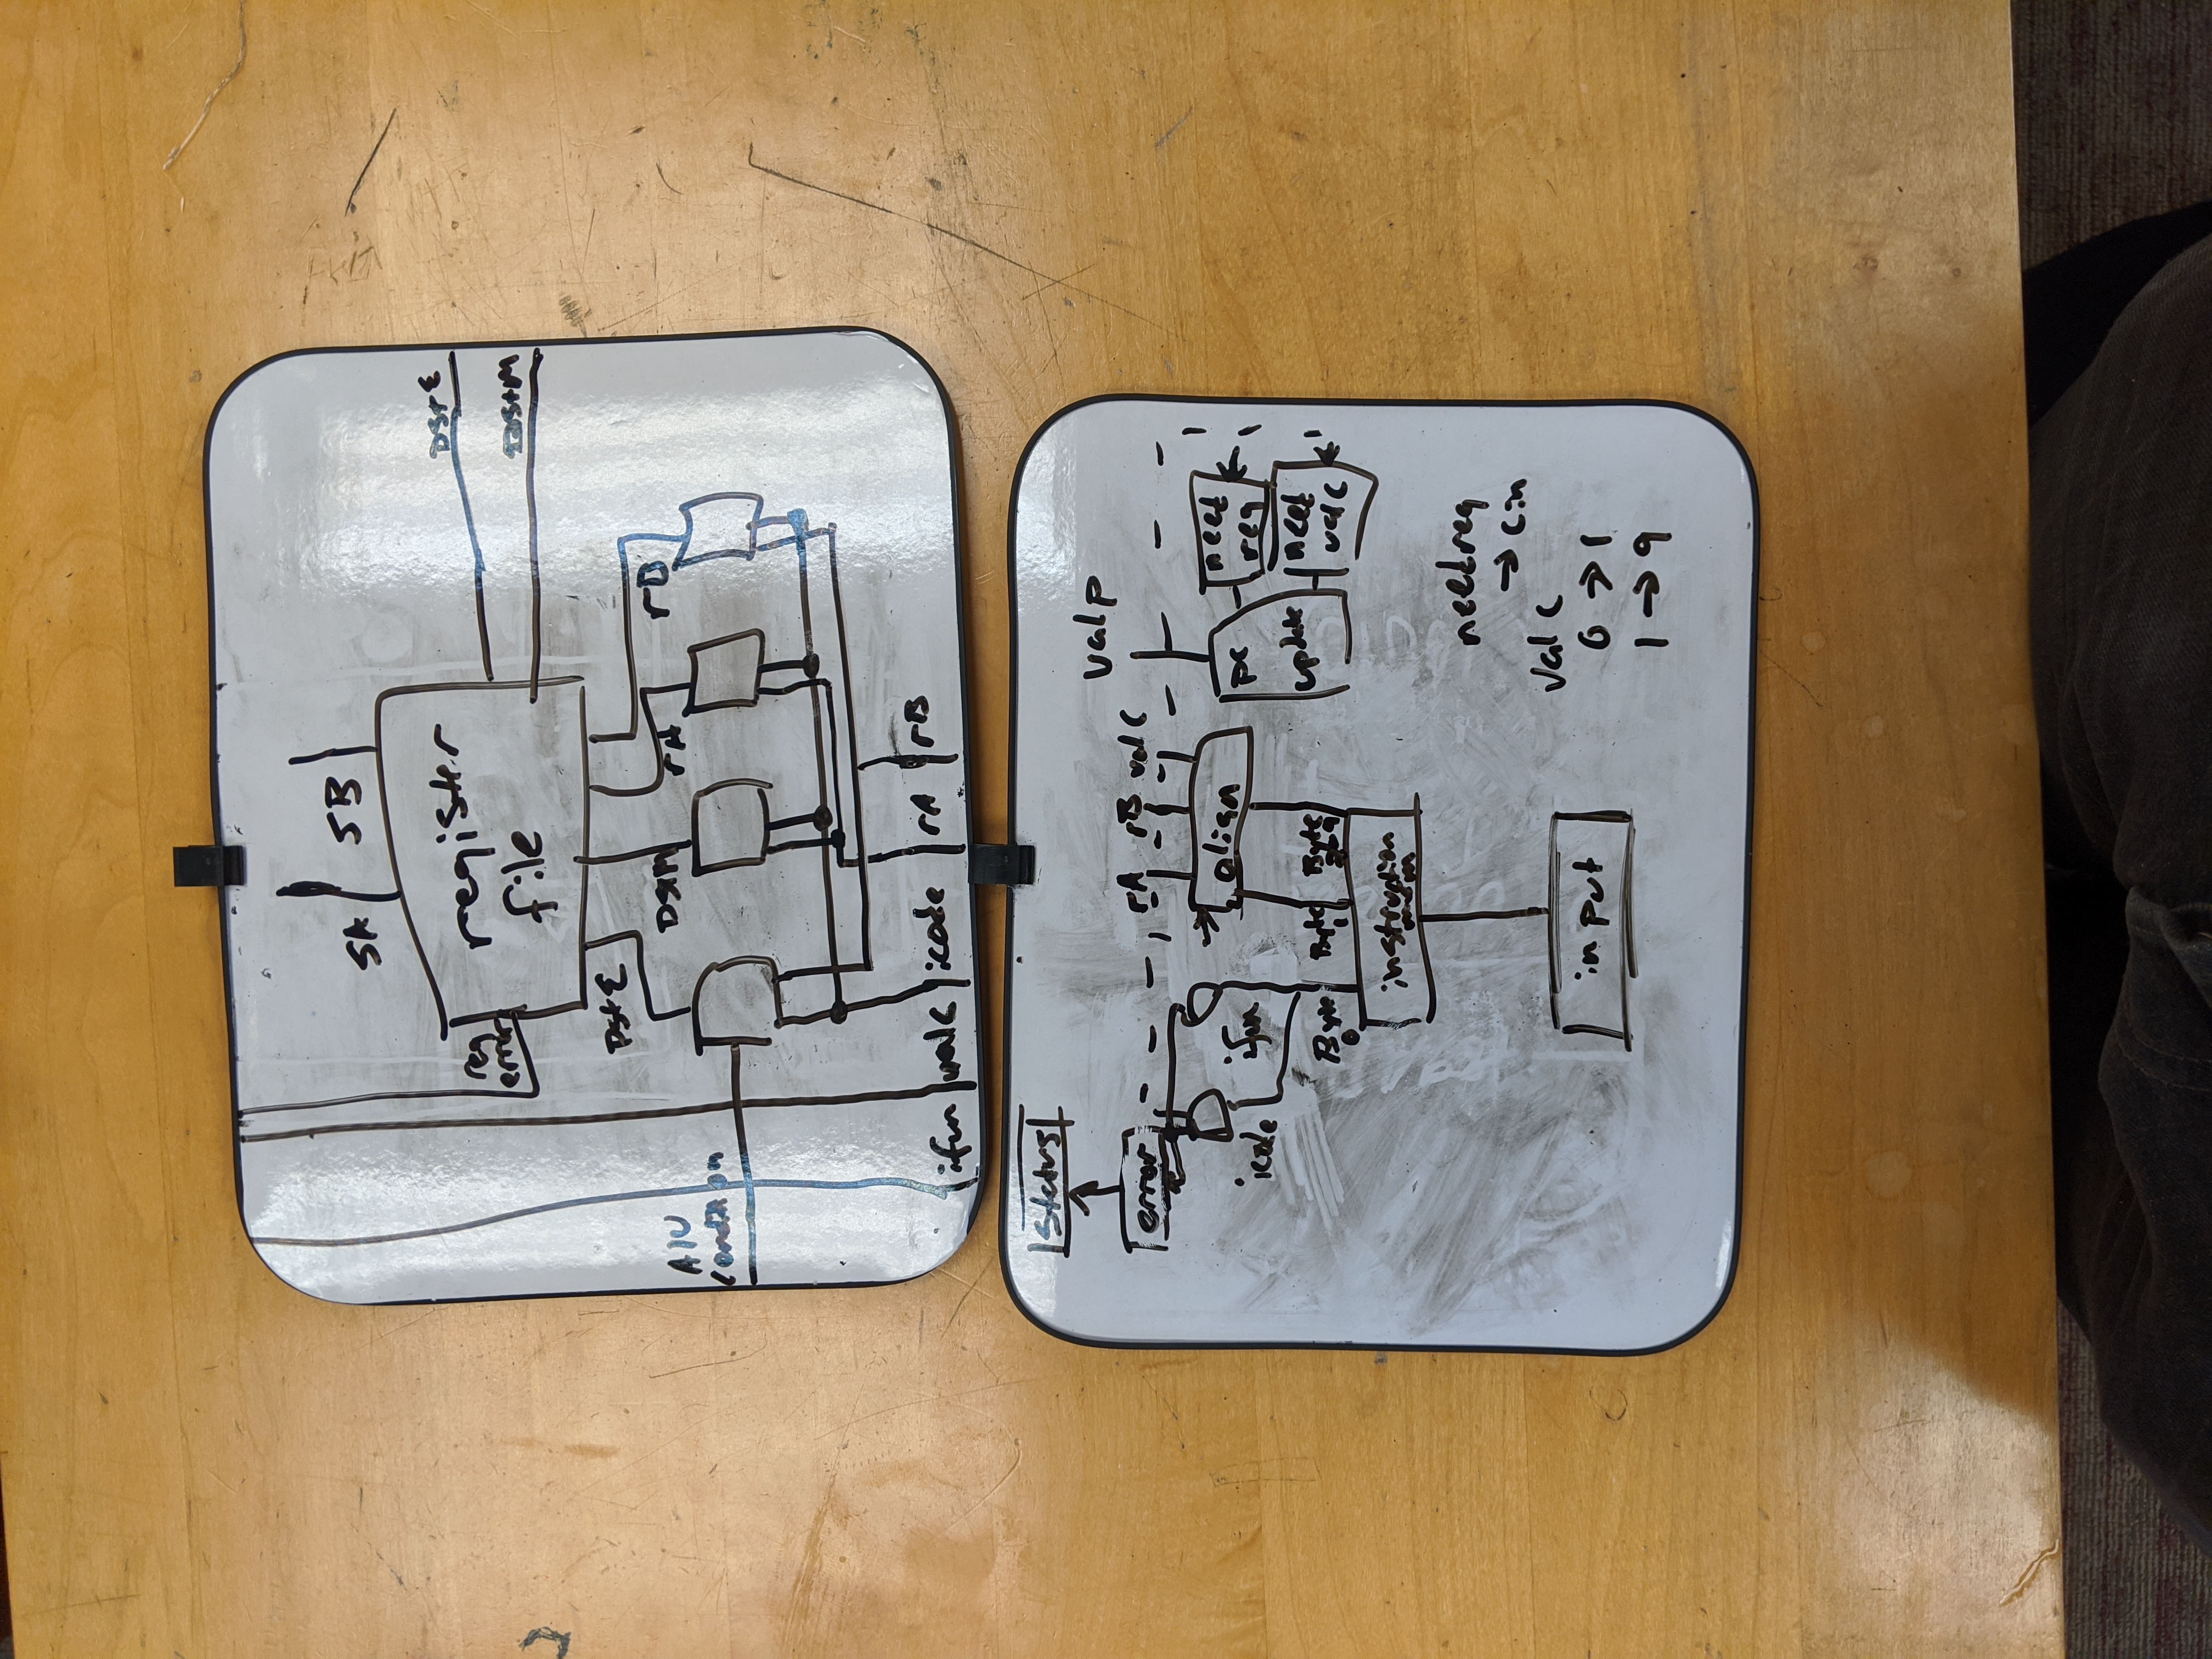 SA SB
register
file
reg
error
DstE
DstM
DstE
DstM
rA
rB
AlU
Condition
ifun valC icode rA rB
Status
error
rA rB valC
valp
align
icode
ifun
pc
update
need
reg
need
valC
Byte
0
Byte
1
Byte
2-9
instruction
mem
input
needreg
→ Cin
Val C
0 → 1
1 → 9